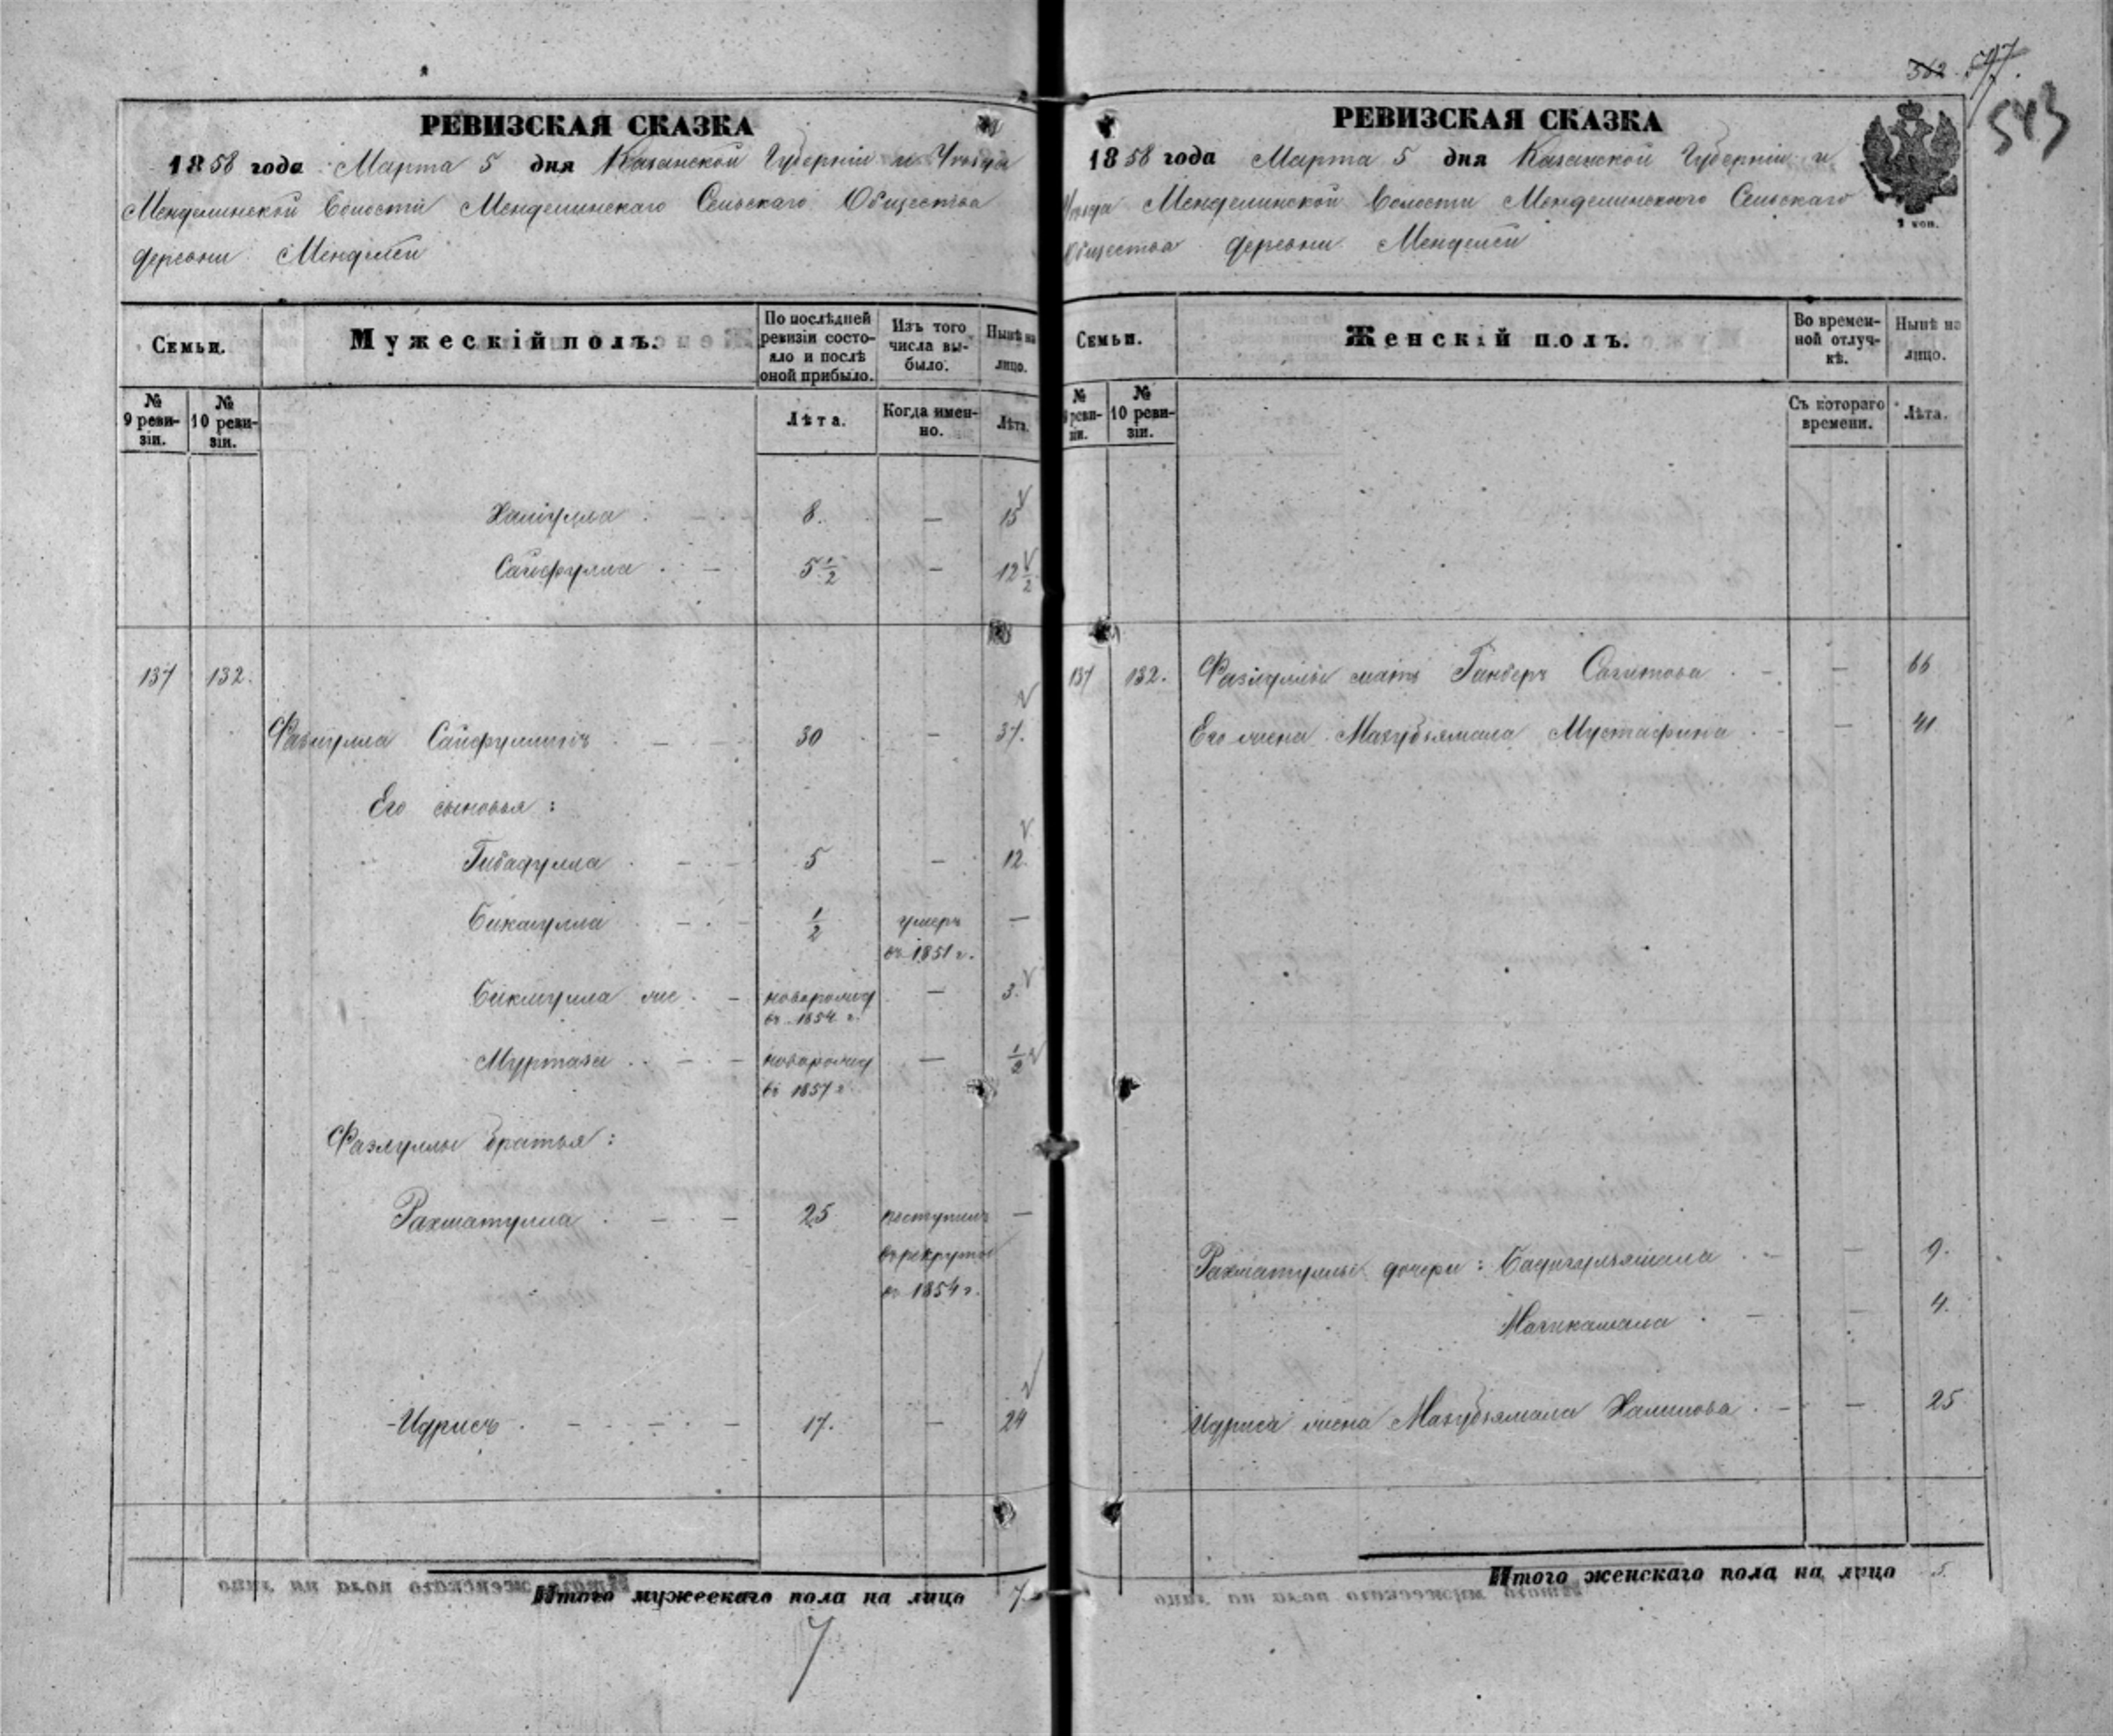 РЕВИЗСКАЯ СКАЗКА
1858 года Марта 5 дня Казанской Губерніи и Уѣзда
Менделинской Волости Менделинскаго Сельскаго Общества
деревни Менделей
Семьи.
Мужескій полъ.
По послѣдней ревизіи состояло и послѣ оной прибыло.
Изъ того числа выбыло.
Нынѣ на лицо.
№ 9 ревизіи.
№ 10 ревизіи.
Лѣта.
Когда именно.
Лѣта.
8. — 15
Сайфулла 5 1/2 — 12 1/2
137 132.
Фазлулла Сайфуллинъ 30 — 37.
Его сыновья:
Гибадулла 5 — 12.
1/2 умеръ въ 1851 г. —
новорожд въ 1854 г. — 3.
Муртаза новорожд въ 1857 г — 1/2
Фазлуллы братья:
Рахматулла 25 поступилъ въ рекруты въ 1854 г. —
Идрисъ 17. — 24
Итого мужескаго пола на лицо 7
7
562 547.
543
РЕВИЗСКАЯ СКАЗКА
1858 года Марта 5 дня Казанской Губерніи и
Уѣзда Менделинской Волости Менделинскаго Сельскаго
Общества деревни Менделей
Семьи.
Женскій полъ.
Во временной отлучкѣ.
Нынѣ на лицо.
№ 9 ревизіи.
№ 10 ревизіи.
Съ котораго времени.
Лѣта.
137 132. Фазлуллы мать Сагитова — 66
Его жена Махубзямала Мустафина — 41
Рахматуллы дочери: — 9.
— 4.
Идриса жена Махубзямала Халитова — 25
Итого женскаго пола на лицо 5.